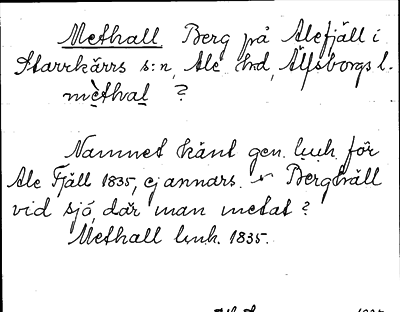 Methall Berg på Alefjäll i
Starrkärrs s:n, Ale hd, Älfsborgs l.
mèthval ?
Namnet känt gen. luuk. för
Ale Fjäll 1835, ej annars. Berghäll
vid sjö, där man metat?
Methall luuk. 1835.